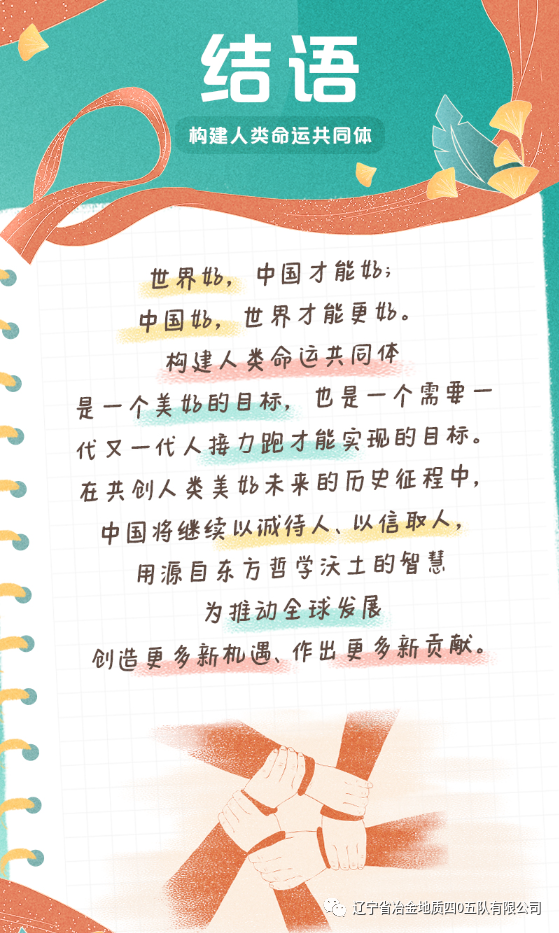 结语
构建人类命运共同体
世界好，中国才能好；
中国好，世界才能更好。
构建人类命运共同体
是一个美好的目标，也是一个需要一
代又一代人接力跑才能实现的目标。
在共创人类美好未来的历史征程中，
中国将继续以诚待人、以信取人，
用源自东方哲学沃土的智慧
为推动全球发展
创造更多新机遇、作出更多新贡献。
辽宁省冶金地质四0五队有限公司